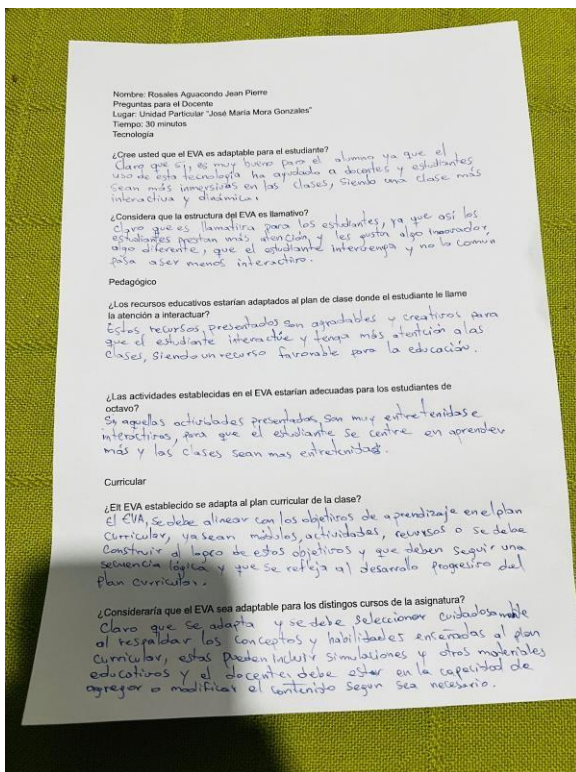 Nombre: Rosales Aguacondo Jean Pierre
Preguntas para el Docente
Lugar: Unidad Particular "José María Mora Gonzales"
Tiempo: 30 minutos
Tecnología
¿Cree usted que el EVA es adaptable para el estudiante?
Claro que si, es muy bueno para el alumno ya que el
uso de esta tecnología ha ayudado a docentes y estudiantes
sean más inmersivas en las clases, siendo una clase más
interactiva y dinámica.
¿Considera que la estructura del EVA es llamativo?
Claro que es llamativa para los estudiantes, ya que así los
estudiantes prestan más atención, les gustan algo innovador,
algo diferente, que el estudiante intervenga y no lo común
pasa a ser menos interactivo.
Pedagógico
¿Los recursos educativos estarían adaptados al plan de clase donde el estudiante le llame
la atención a interactuar?
Estos recursos presentados son agradables y creativos para
que el estudiante interactúe y tenga más atención a las
clases, siendo un recurso favorable para la educación.
¿Las actividades establecidas en el EVA estarían adecuadas para los estudiantes de
octavo?
Si aquellas actividades presentadas, son muy entretenidas e
interactivas, para que el estudiante se centre en aprender
más y las clases sean mas entretenidas.
Curricular
¿Elt EVA establecido se adapta al plan curricular de la clase?
El EVA, se debe alinear con los objetivos de aprendizaje en el plan
curricular, ya sean módulos, actividades, recursos o se debe
construir al logro de estos objetivos y que deben seguir una
secuencia lógica y que se refleja al desarrollo progresivo del
plan curricular.
¿Consideraría que el EVA sea adaptable para los distingos cursos de la asignatura?
Claro que se adapta y se debe seleccionar cuidadosamente
al respaldar los conceptos y habilidades enseñadas al plan
curricular, estas pueden incluir simulaciones y otros materiales
educativos y el docente, debe estar en la capacidad de
agregar o modificar el contenido segun sea necesario.